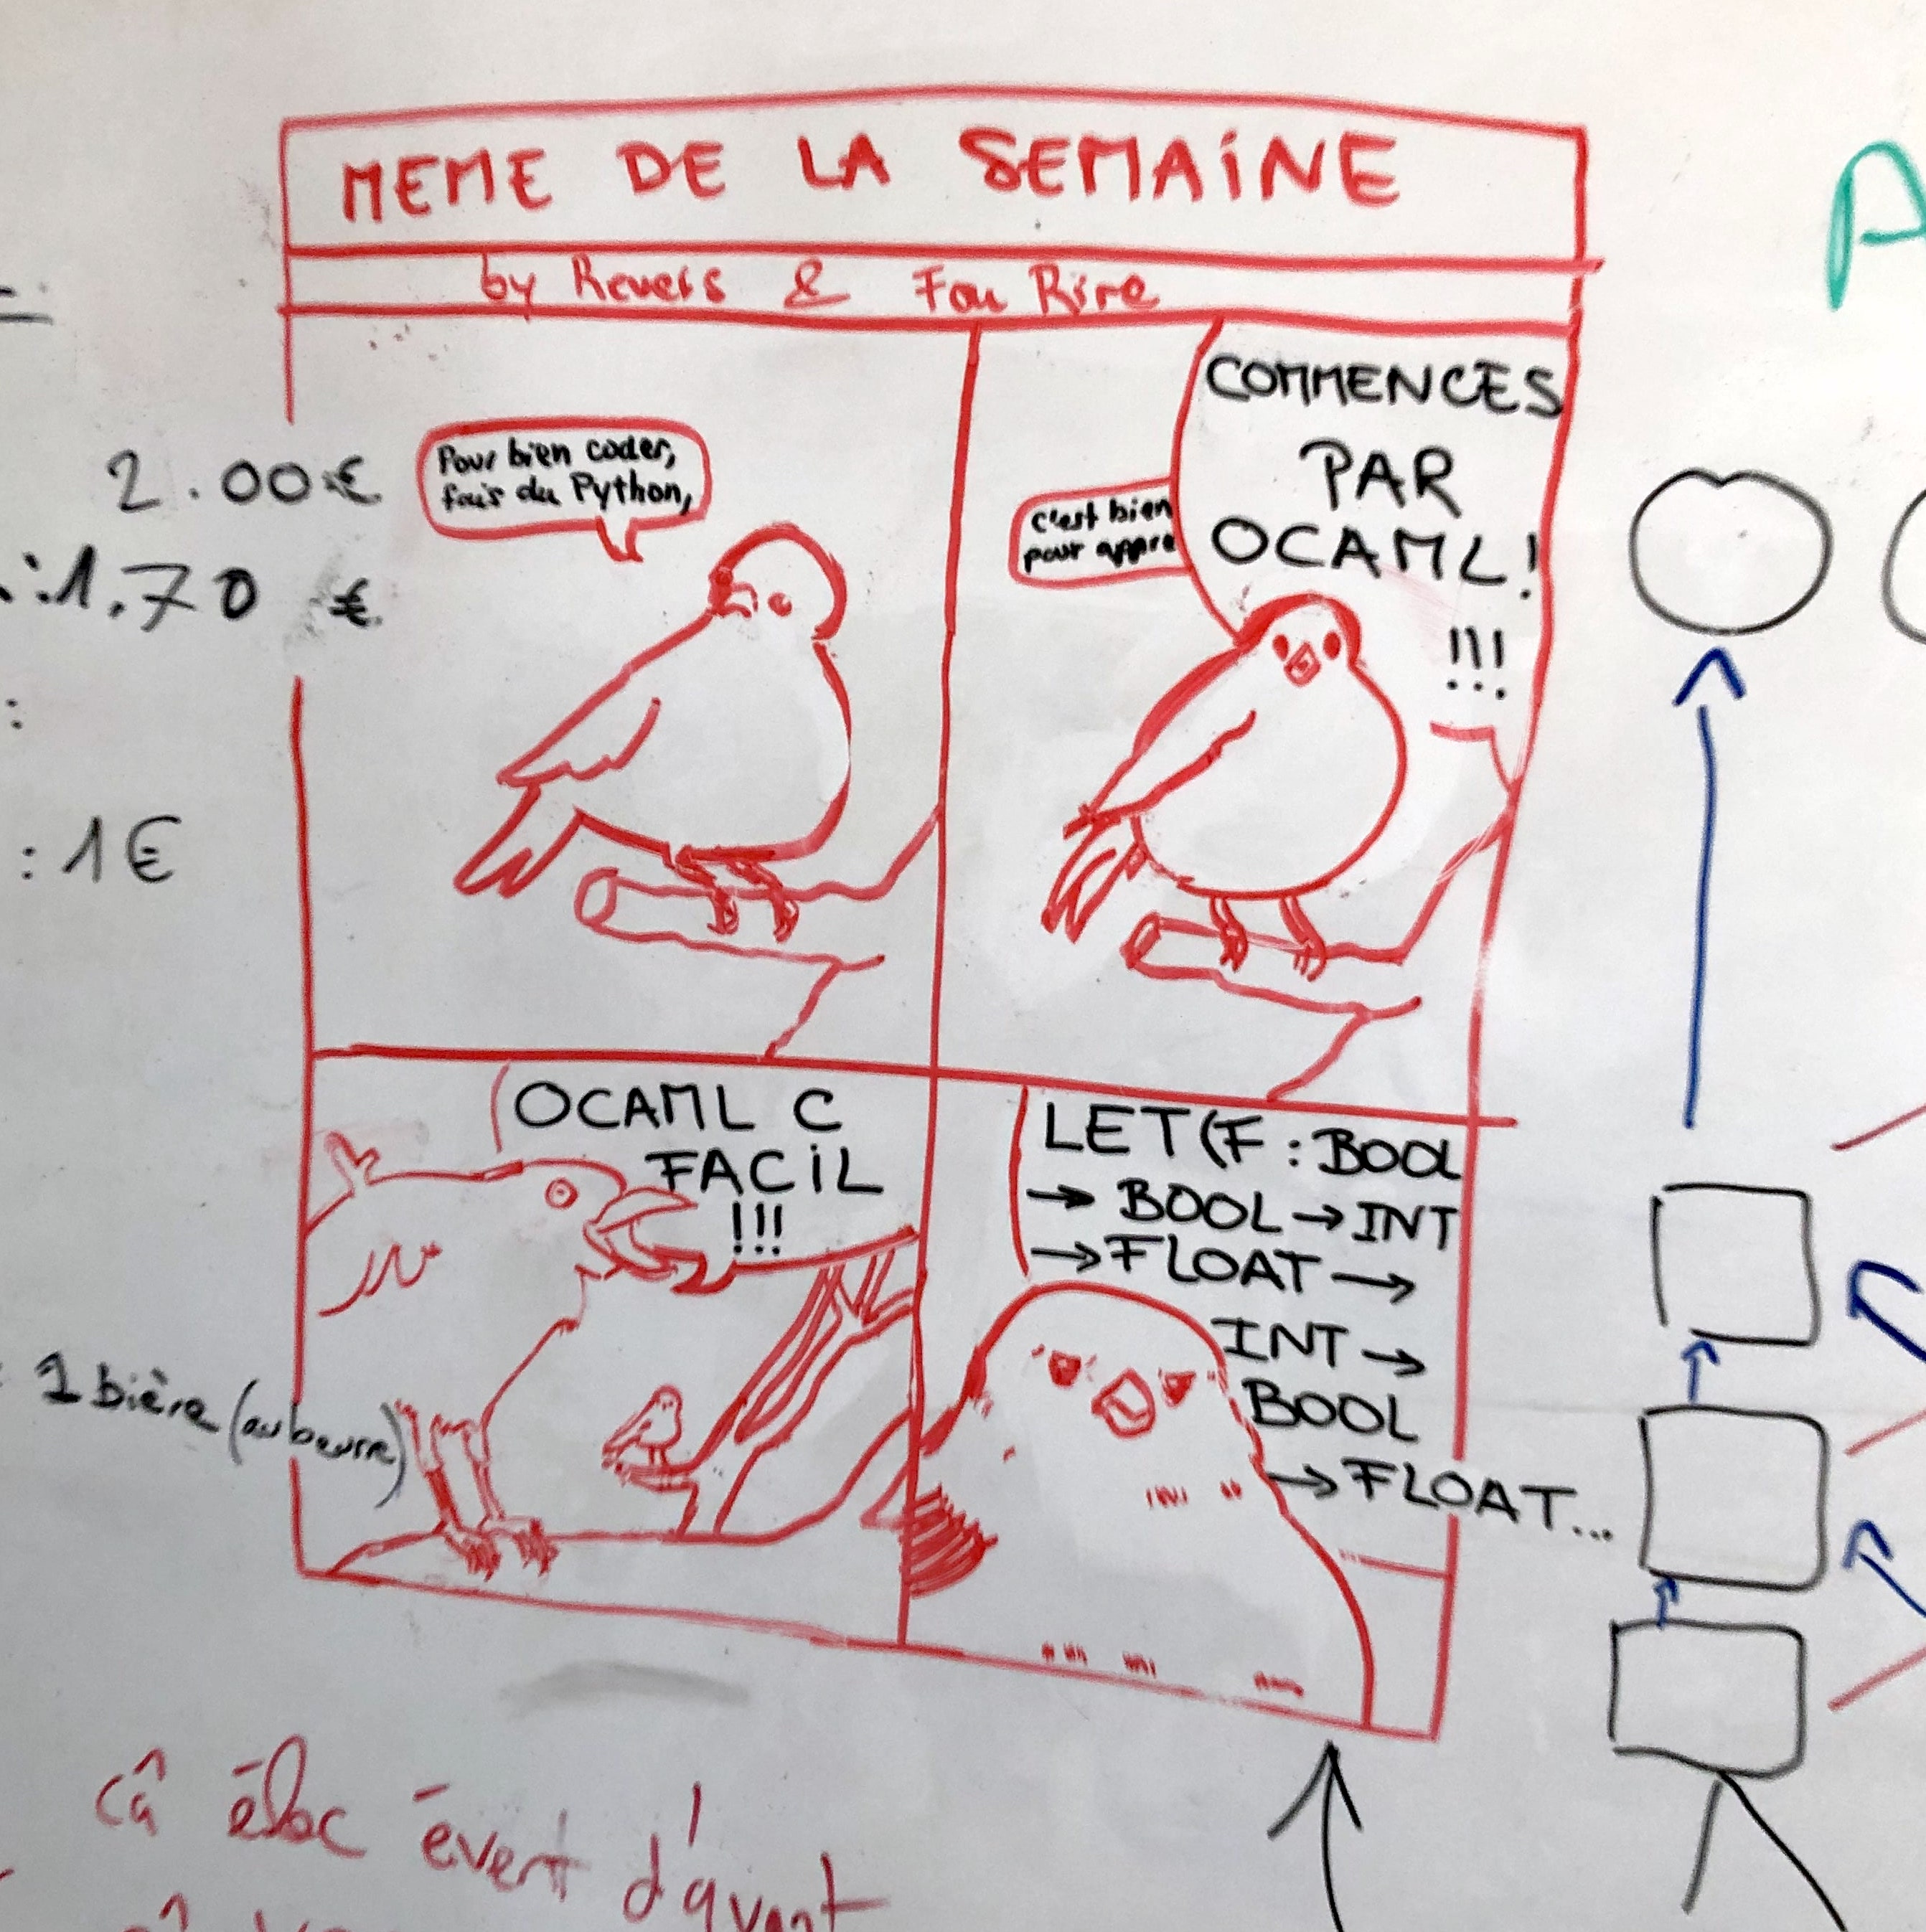 MEME DE LA SEMAINE
by Revers & Fou Rire
Pour bien coder,
fais du Python,
COMMENCES
PAR
OCAML!
!!!
c'est bien
pour appre
OCAML C
FACIL
!!!
LET(F : BOOL
→ BOOL → INT
→ FLOAT →
INT →
BOOL
→ FLOAT...
2.00€
:1.70 €
:
: 1€
1 bière (au beurre)
câ éloc évert d'avant
A